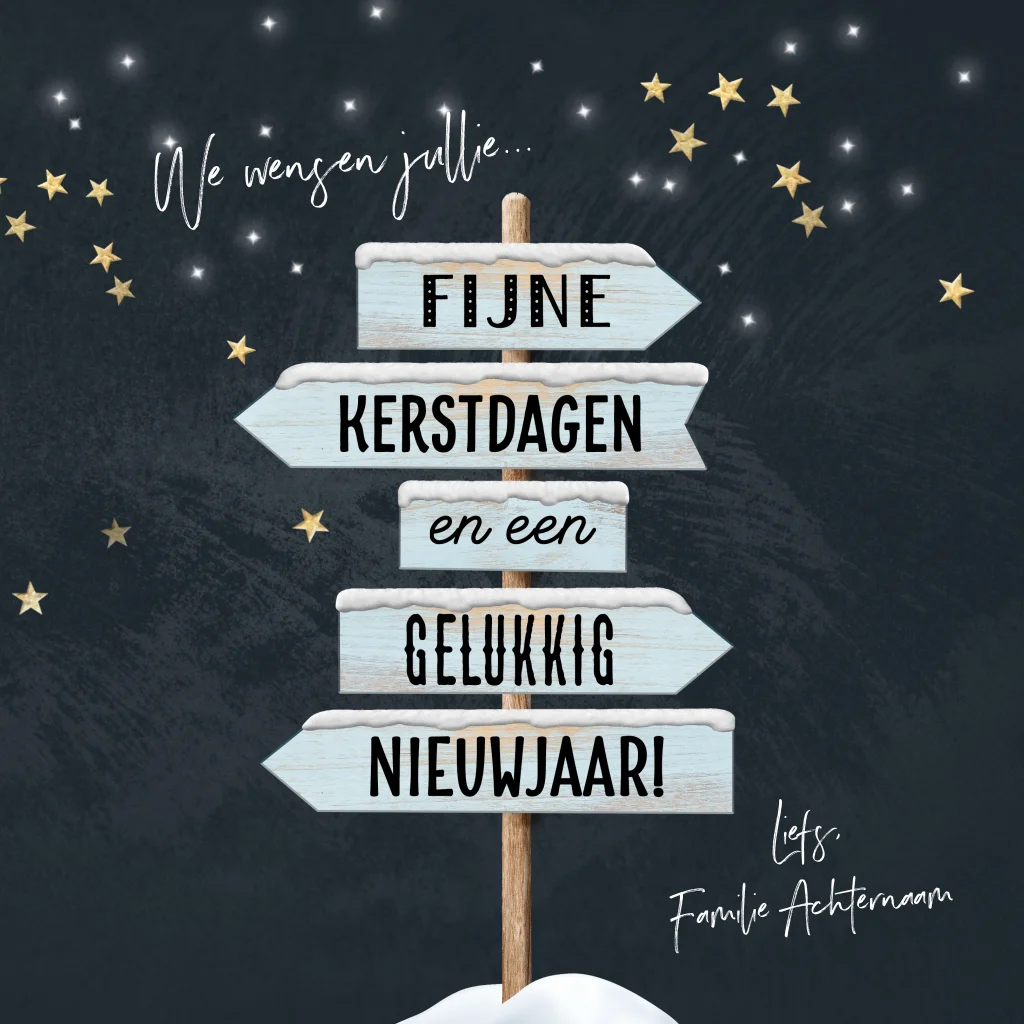 We wensen jullie...
FIJNE
KERSTDAGEN
en een
GELUKKIG
NIEUWJAAR!
Liefs,
Familie Achternaam